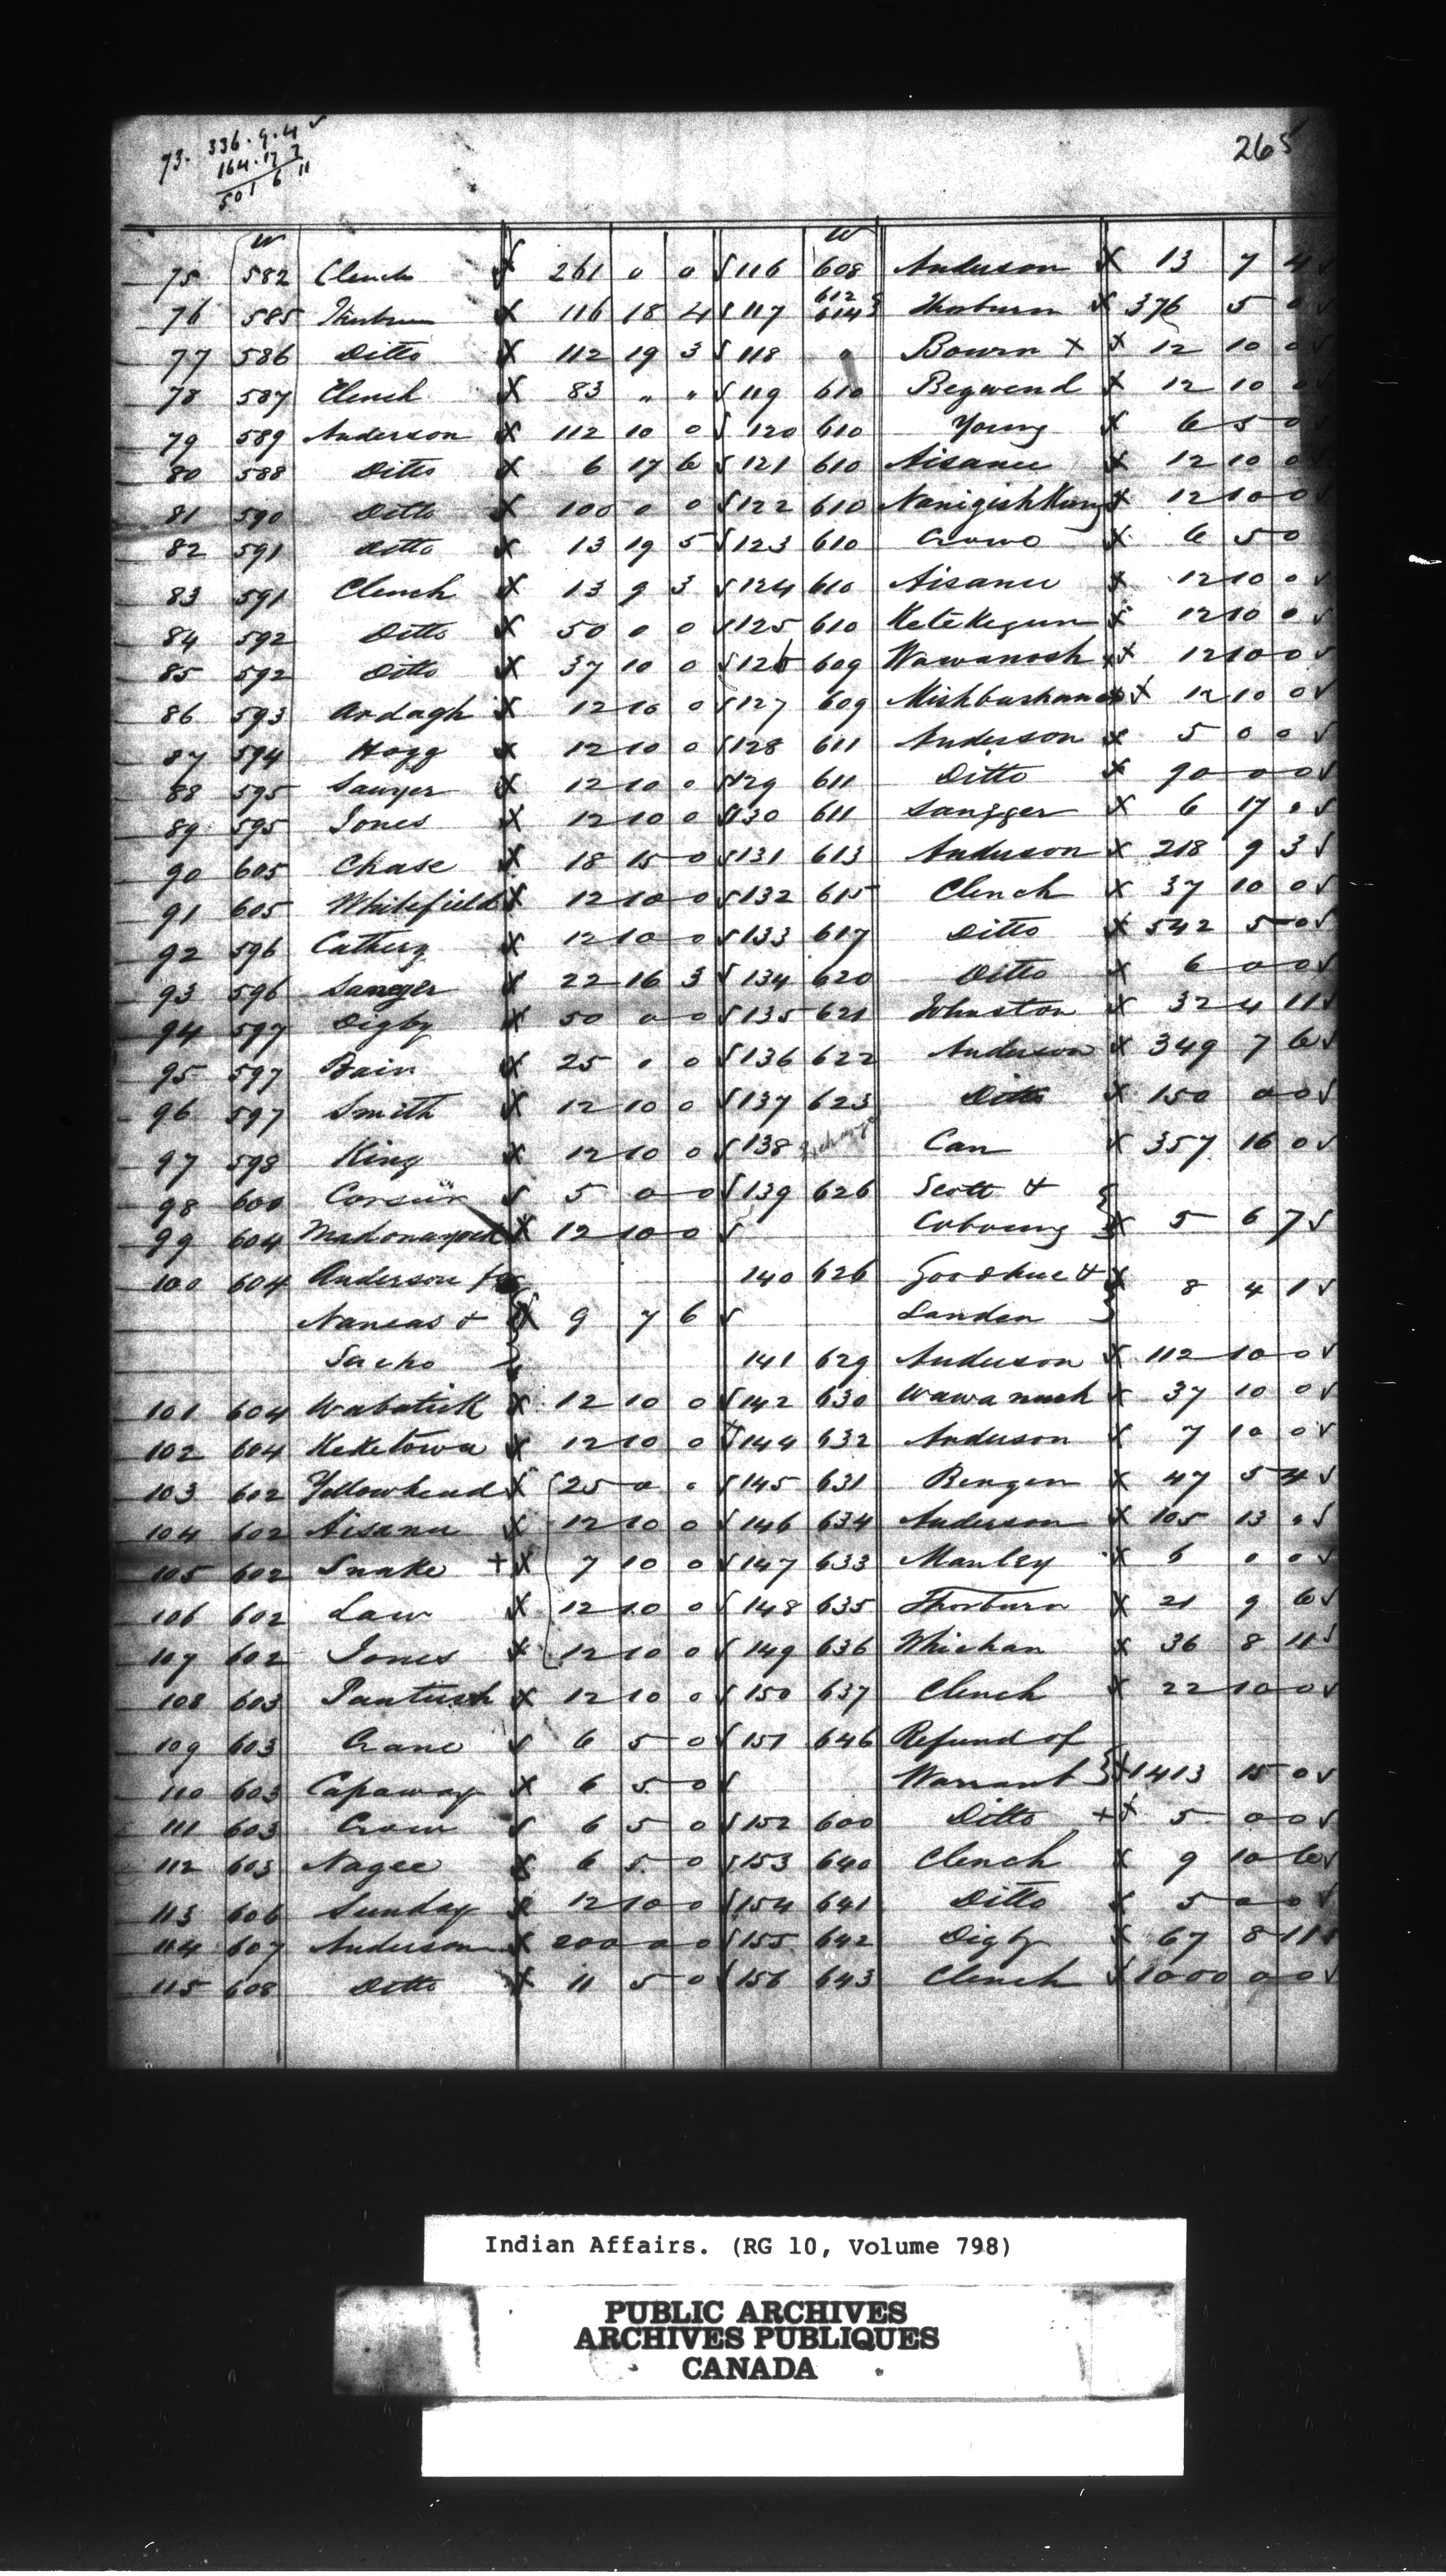 73. 336. 9. 4 ✓
164. 17 7
501 6 11
265
W W
75 582 Clench X 261 0 0 ✓ 116 608 Anderson X 13 7 4 ✓
612 &
76 585 Thorburn X 116 18 4 ✓ 117 614 Thorburn X 376 5 0 ✓
77 586 Ditto X 112 19 3 ✓ 118 " Bourn X X 12 10 0 ✓
78 587 Clench X 83 " " ✓ 119 610 Begwend X 12 10 0 ✓
79 589 Anderson X 112 10 0 ✓ 120 610 Young X 6 5 0 ✓
80 588 Ditto X 6 17 6 ✓ 121 610 Aisance X 12 10 0 ✓
81 590 Ditto X 100 0 0 ✓ 122 610 Nanigishkung X 12 10 0 ✓
82 591 Ditto X 13 19 5 ✓ 123 610 X 6 5 0
83 591 Clench X 13 9 3 ✓ 124 610 Aisance X 12 10 0 ✓
84 592 Ditto X 50 0 0 ✓ 125 610 Ketekegun X 12 10 0 ✓
85 592 Ditto X 37 10 0 ✓ 126 609 Wawanosh X X 12 10 0 ✓
86 593 Ardagh X 12 10 0 ✓ 127 609 X 12 10 0 ✓
87 594 Hogg X 12 10 0 ✓ 128 611 Anderson X 5 0 0 ✓
88 595 Sawyer X 12 10 0 ✓ 129 611 Ditto X 90 0 0 ✓
89 595 Jones X 12 10 0 ✓ 130 611 Sangger X 6 17 0 ✓
90 605 Chase X 18 15 0 ✓ 131 613 Anderson X 218 9 3 ✓
91 605 Whitefield X 12 10 0 ✓ 132 615 Clench X 37 10 0 ✓
92 596 Cathery X 12 10 0 ✓ 133 617 Ditto X 542 5 0 ✓
93 596 Sanger X 22 16 3 ✓ 134 620 Ditto X 6 0 0 ✓
94 597 Digby X 50 0 0 ✓ 135 621 Johnston X 32 4 11 ✓
95 597 Bain X 25 0 0 ✓ 136 622 Anderson X 349 7 6 ✓
96 597 Smith X 12 10 0 ✓ 137 623 Ditto X 150 0 0 ✓
97 598 King X 12 10 0 ✓ 138 Exchange Can X 357 16 0 ✓
98 600 ✓ 5 0 0 ✓ 139 626 Scott &
99 604 X 12 10 0 ✓ Cobourg } X 5 6 7 ✓
100 604 Anderson for 140 626 Goodhue & X 8 4 1 ✓
Naneas & } X 9 7 6 ✓ Landen }
Sacho 141 629 Anderson X 112 10 0 ✓
101 604 Wabatick X 12 10 0 ✓ 142 630 Wawanush X 37 10 0 ✓
102 604 Keketowa X 12 10 0 ✓ 144 632 Anderson X 7 10 0 ✓
103 602 Yellowhead X 25 0 0 ✓ 145 631 Bergen X 47 5 4 ✓
104 602 Aisance X 12 10 0 ✓ 146 634 Anderson X 105 13 0 ✓
105 602 Snake + X 7 10 0 ✓ 147 633 Manley X 6 0 0 ✓
106 602 Law X 12 10 0 ✓ 148 635 Thorburn X 21 9 6 ✓
107 602 Jones X 12 10 0 ✓ 149 636 Whichan X 36 8 11 ✓
108 603 Pautush X 12 10 0 ✓ 150 637 Clench X 22 10 0 ✓
109 603 Crane ✓ 6 5 0 ✓ 151 646 Refund of
110 603 Capaway X 6 5 0 ✓ Warrant } X 1413 15 0 ✓
111 603 Crow ✓ 6 5 0 ✓ 152 600 Ditto + X 5 0 0 ✓
112 603 Nagee X 6 5 0 ✓ 153 640 Clench X 9 10 6 ✓
113 606 Sunday X 12 10 0 ✓ 154 641 Ditto X 5 0 0 ✓
114 607 Anderson X 200 0 0 ✓ 155 642 Digby X 67 8 11 ✓
115 608 Ditto X 11 5 0 ✓ 156 643 Clench ✓ 1000 0 0 ✓
Indian Affairs. (RG 10, Volume 798)
PUBLIC ARCHIVES
ARCHIVES PUBLIQUES
CANADA